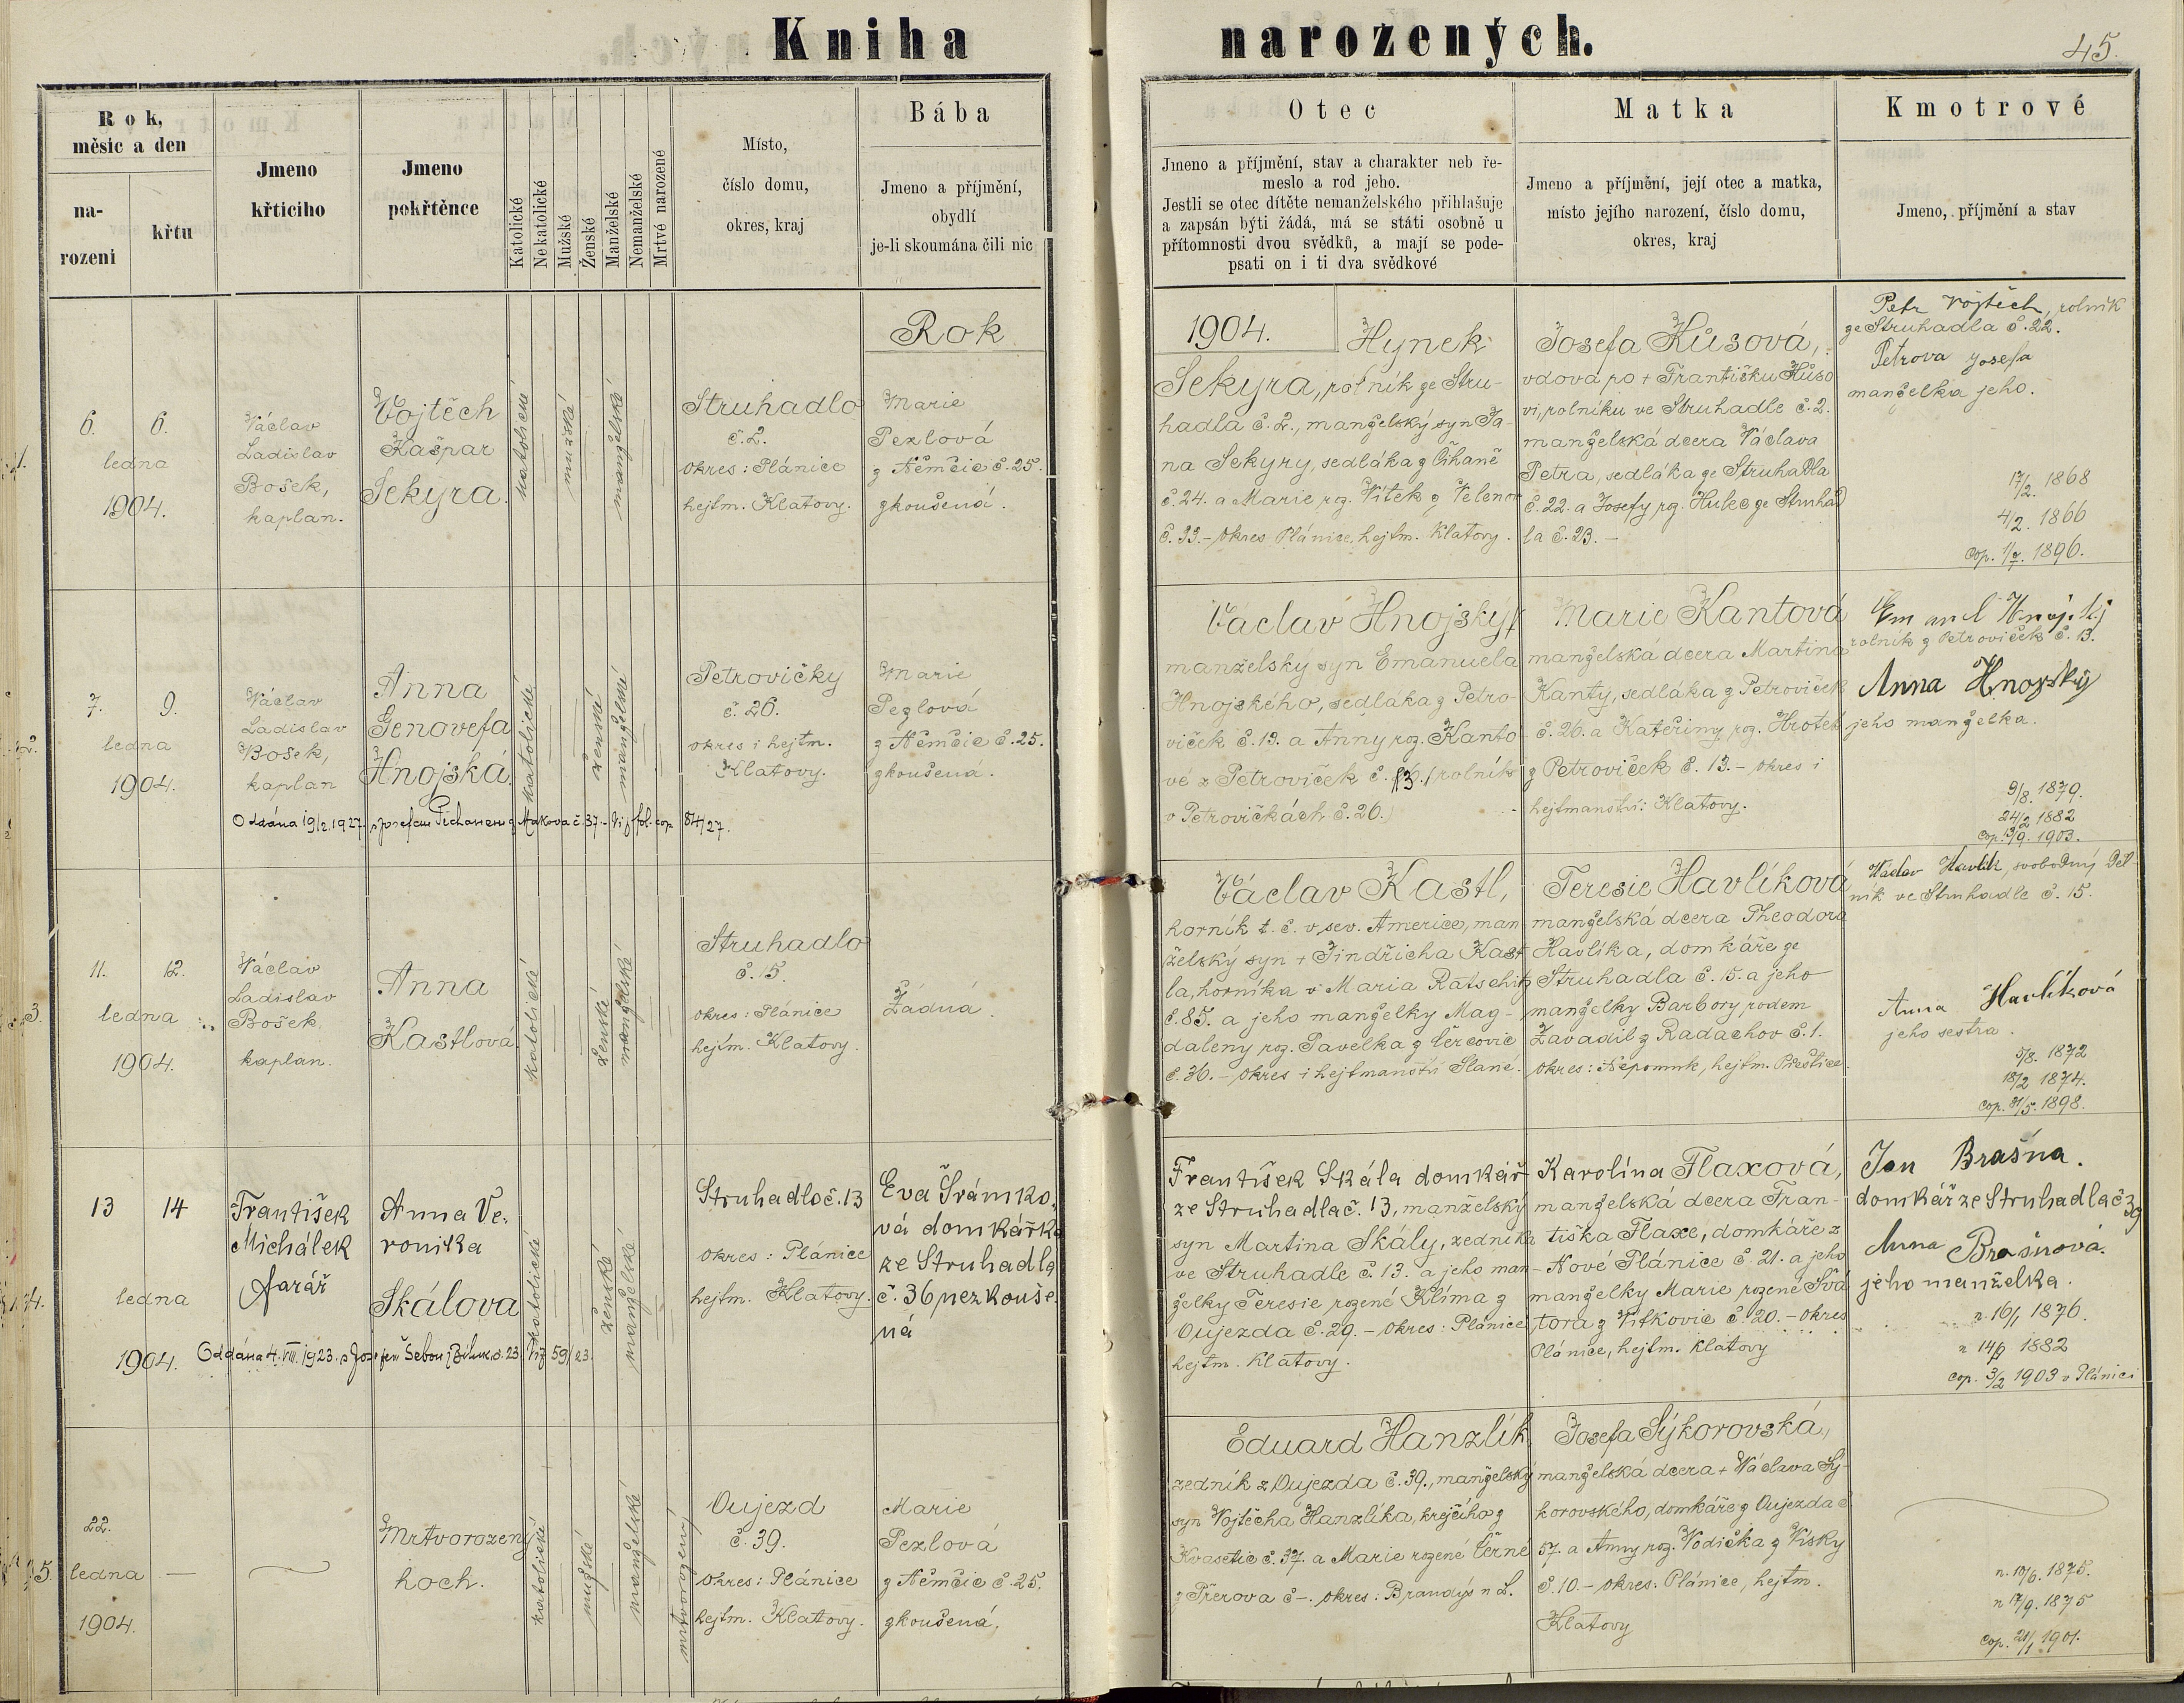 Kniha narozených.
45.
Rok,
měsíc a den
na-
rozeni
křtu
Jmeno
křticiho
Jmeno
pokřtěnce
Katolické
Nekatolické
Mužské
Ženské
Manželské
Nemanželské
Mrtvé narozené
Místo,
číslo domu,
okres, kraj
Bába
Jmeno a příjmění,
obydlí
je-li skoumána čili nic
Otec
Jmeno a příjmění, stav a charakter neb ře-
meslo a rod jeho.
Jestli se otec dítěte nemanželského přihlašuje
a zapsán býti žádá, má se státi osobně u
přítomnosti dvou svědků, a mají se pode-
psati on i ti dva svědkové
Matka
Jmeno a příjmění, její otec a matka,
místo jejího narození, číslo domu,
okres, kraj
Kmotrové
Jmeno, příjmění a stav
Rok
1904.
1.
6. 6.
ledna
1904.
Václav
Ladislav
Bošek,
kaplan.
Vojtěch
Kašpar
Sekyra.
katolické
mužské
manželské
Struhadlo
č. 2.
okres: Plánice
hejtm. Klatovy.
Marie
Pezlová
z Němčic č. 25.
zkoušená.
Hynek
Sekyra, rolník ze Stru-
hadla č. 2., manželský syn Ja-
na Sekyry, sedláka z Číhaně
č. 24. a Marie roz. Vítek z Velenov
č. 33.- okres Plánice, hejtm. Klatovy.
Josefa Hůsová,
vdova po + Františku Hůso
vi, rolníku ve Struhadle č. 2.
manželská dcera Václava
Petra, sedláka ze Struhadla
č. 22. a Josefy rz. Hulec ze Struhad
la č. 23. -
Petr Vojtěch, rolník
ze Struhadla č. 22.
Petrova Josefa
manželka jeho.
17/2. 1868
4/2. 1866
cop. 1/7. 1896.
2.
7. 9.
ledna
1904.
Václav
Ladislav
Bošek,
kaplan
Anna
Genovefa
Hnojská
katolické
ženské
manželské
Petrovičky
č. 26.
okres i hejtm.
Klatovy.
Marie
Pezlová
z Němčic č. 25.
zkoušená.
Oddána 19/2. 1927 s Josefem Píchanem z Makova č. 37.- Viz fol. cop 84/27.
Václav Hnojský,
manželský syn Emanuela
Hnojského, sedláka z Petro-
viček č. 13. a Anny roz. Kanto
vé z Petroviček č. 13. / rolník
v Petrovičkách č. 26.)
Marie Kantová
manželská dcera Martina
Kanty, sedláka z Petroviček
č. 26. a Kateřiny roz. Hrotek
z Petroviček č. 13. - okres i
hejtmanství: Klatovy.
rolník z Petroviček č. 13.
Anna Hnojský
jeho manželka.
9/8. 1879.
24/2 1882
cop. 13/9. 1903.
3.
11. 12.
ledna
1904.
Václav
Ladislav
Bošek,
kaplan.
Anna
Kastlová
katolické
ženské
manželské
Struhadlo
č. 15.
okres: Plánice
hejtm. Klatovy.
Žádná.
Václav Kastl,
horník t. č. v sev. Americe, man
želský syn + Jindřicha Kast
la, horníka v Maria Ratschitz
č. 85. a jeho manželky Mag-
daleny roz. Pavelka z Černovic
č. 36. - okres i hejtmanství Slané.
Teresie Havlíková
manželská dcera Theodora
Havlíka, domkáře ze
Struhadla č. 15. a jeho
manželky Barbory rodem
Zavadil z Radachov č. 1.
okres: Nepomuk, hejtm. Přeštice.
Václav Havlík, svobodný děl-
ník ve Struhadle č. 15.
Anna Havlíková
jeho sestra.
5/8. 1872
18/2 1874.
cop. 31/5. 1898.
4.
13 14
ledna
1904.
František
Michálek
farář
Anna Ve-
ronika
Skálova
katolické
ženské
manželské
Struhadlo č. 13
okres: Plánice
hejtm. Klatovy.
Eva Šrámko-
vá domkářka
ze Struhadla
č. 36 nezkouše-
ná
Oddána 4. VIII. 1923. s Josefem Šebou 23. Viz 59/23.
František Skála domkář
ze Struhadla č. 13, manželský
syn Martina Skály, zedníka
ve Struhadle č. 13. a jeho man-
želky Teresie rozené Klíma z
Oujezda č. 29. - okres: Plánice
hejtm. Klatovy.
Karolína Flaxová,
manželská dcera Fran-
tiška Flaxe, domkáře z
Nové Plánice č. 21. a jeho
manželky Marie rozené Svá
tora z Vítkovic č. 20. - okres
Plánice, hejtm. Klatovy
Jan Brašna.
domkář ze Struhadla č 39
Anna Brašnová.
jeho manželka.
n. 16/1 1876.
n 14/9 1882
cop. 3/2 1903 v Plánici
5.
22.
ledna
1904.
Mrtvorozený
hoch.
katolické
mužské
manželské
mrtvorozený
Oujezd
č. 39.
okres: Plánice
hejtm. Klatovy.
Marie
Pezlová
z Němčic č. 25.
zkoušená.
Eduard Hanzlík,
zedník z Oujezda č. 39., manželský
syn Vojtěcha Hanzlíka, krejčího z
Kvasetic č. 37. a Marie rozené Černé
z Přerova č -. okres: Brandýs n L.
Josefa Sýkorovská,
manželská dcera + Václava Sý-
korovského, domkáře z Oujezda č
57. a Anny roz. Vodička z Vísky
č. 10. - okres: Plánice, hejtm.
Klatovy
n. 10/6. 1875.
n 17/9. 1875
cop. 21/1 1901.